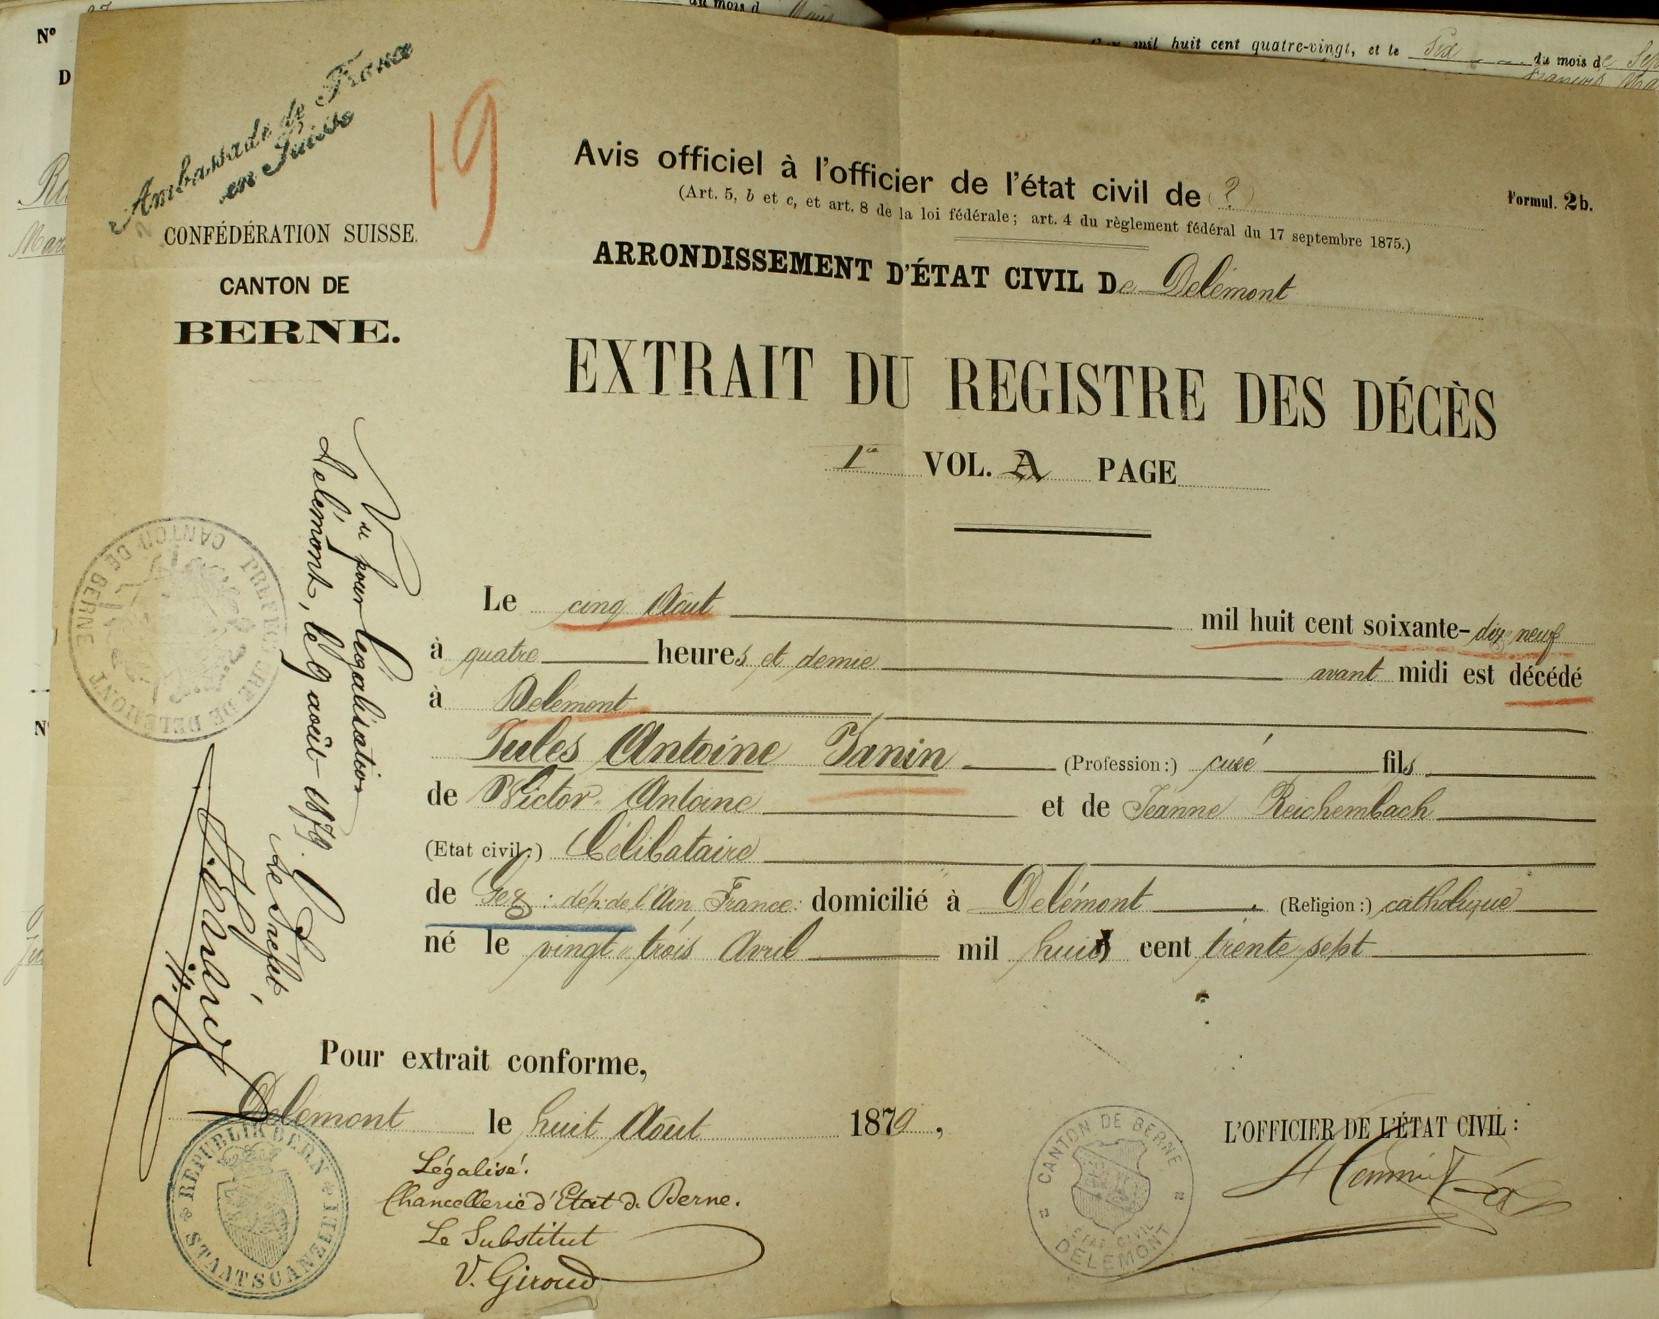 Ambassade de France
en Suisse
CONFÉDÉRATION SUISSE.
CANTON DE
BERNE.
19
Avis officiel à l'officier de l'état civil de ?
Formul. 2b.
(Art. 5, b et c, et art. 8 de la loi fédérale; art. 4 du règlement fédéral du 17 septembre 1875.)
ARRONDISSEMENT D'ÉTAT CIVIL De Delémont
EXTRAIT DU REGISTRE DES DÉCÈS
VOL. A PAGE
Le cinq Août mil huit cent soixante-dix neuf
à quatre heures et demie avant midi est décédé
à Delémont
Jules Antoine Janin (Profession:) curé fils
de Victor Antoine et de Jeanne Reichembach
(Etat civil:) Célibataire
de Gex: dép: de l'Ain France: domicilié à Delémont. (Religion:) catholique
né le vingt-trois Avril mil huit cent trente sept
Pour extrait conforme,
Delémont le huit Août 1879,
L'OFFICIER DE L'ÉTAT CIVIL:
Légalisé.
Chancellerie d'Etat de Berne.
Le Substitut
V. Giroud
Vu pour légalisation
Delémont, le 9 août 1879.
Le Préfet
PREFECTURE DE DELÉMONT
CANTON DE BERNE
REPUBLIK BERN
STAATSCANZLEI
CANTON DE BERNE
ETAT CIVIL
DELEMONT
Nº
D
du mois d Août
mil huit cent quatre-vingt, et le Six du mois de Sep